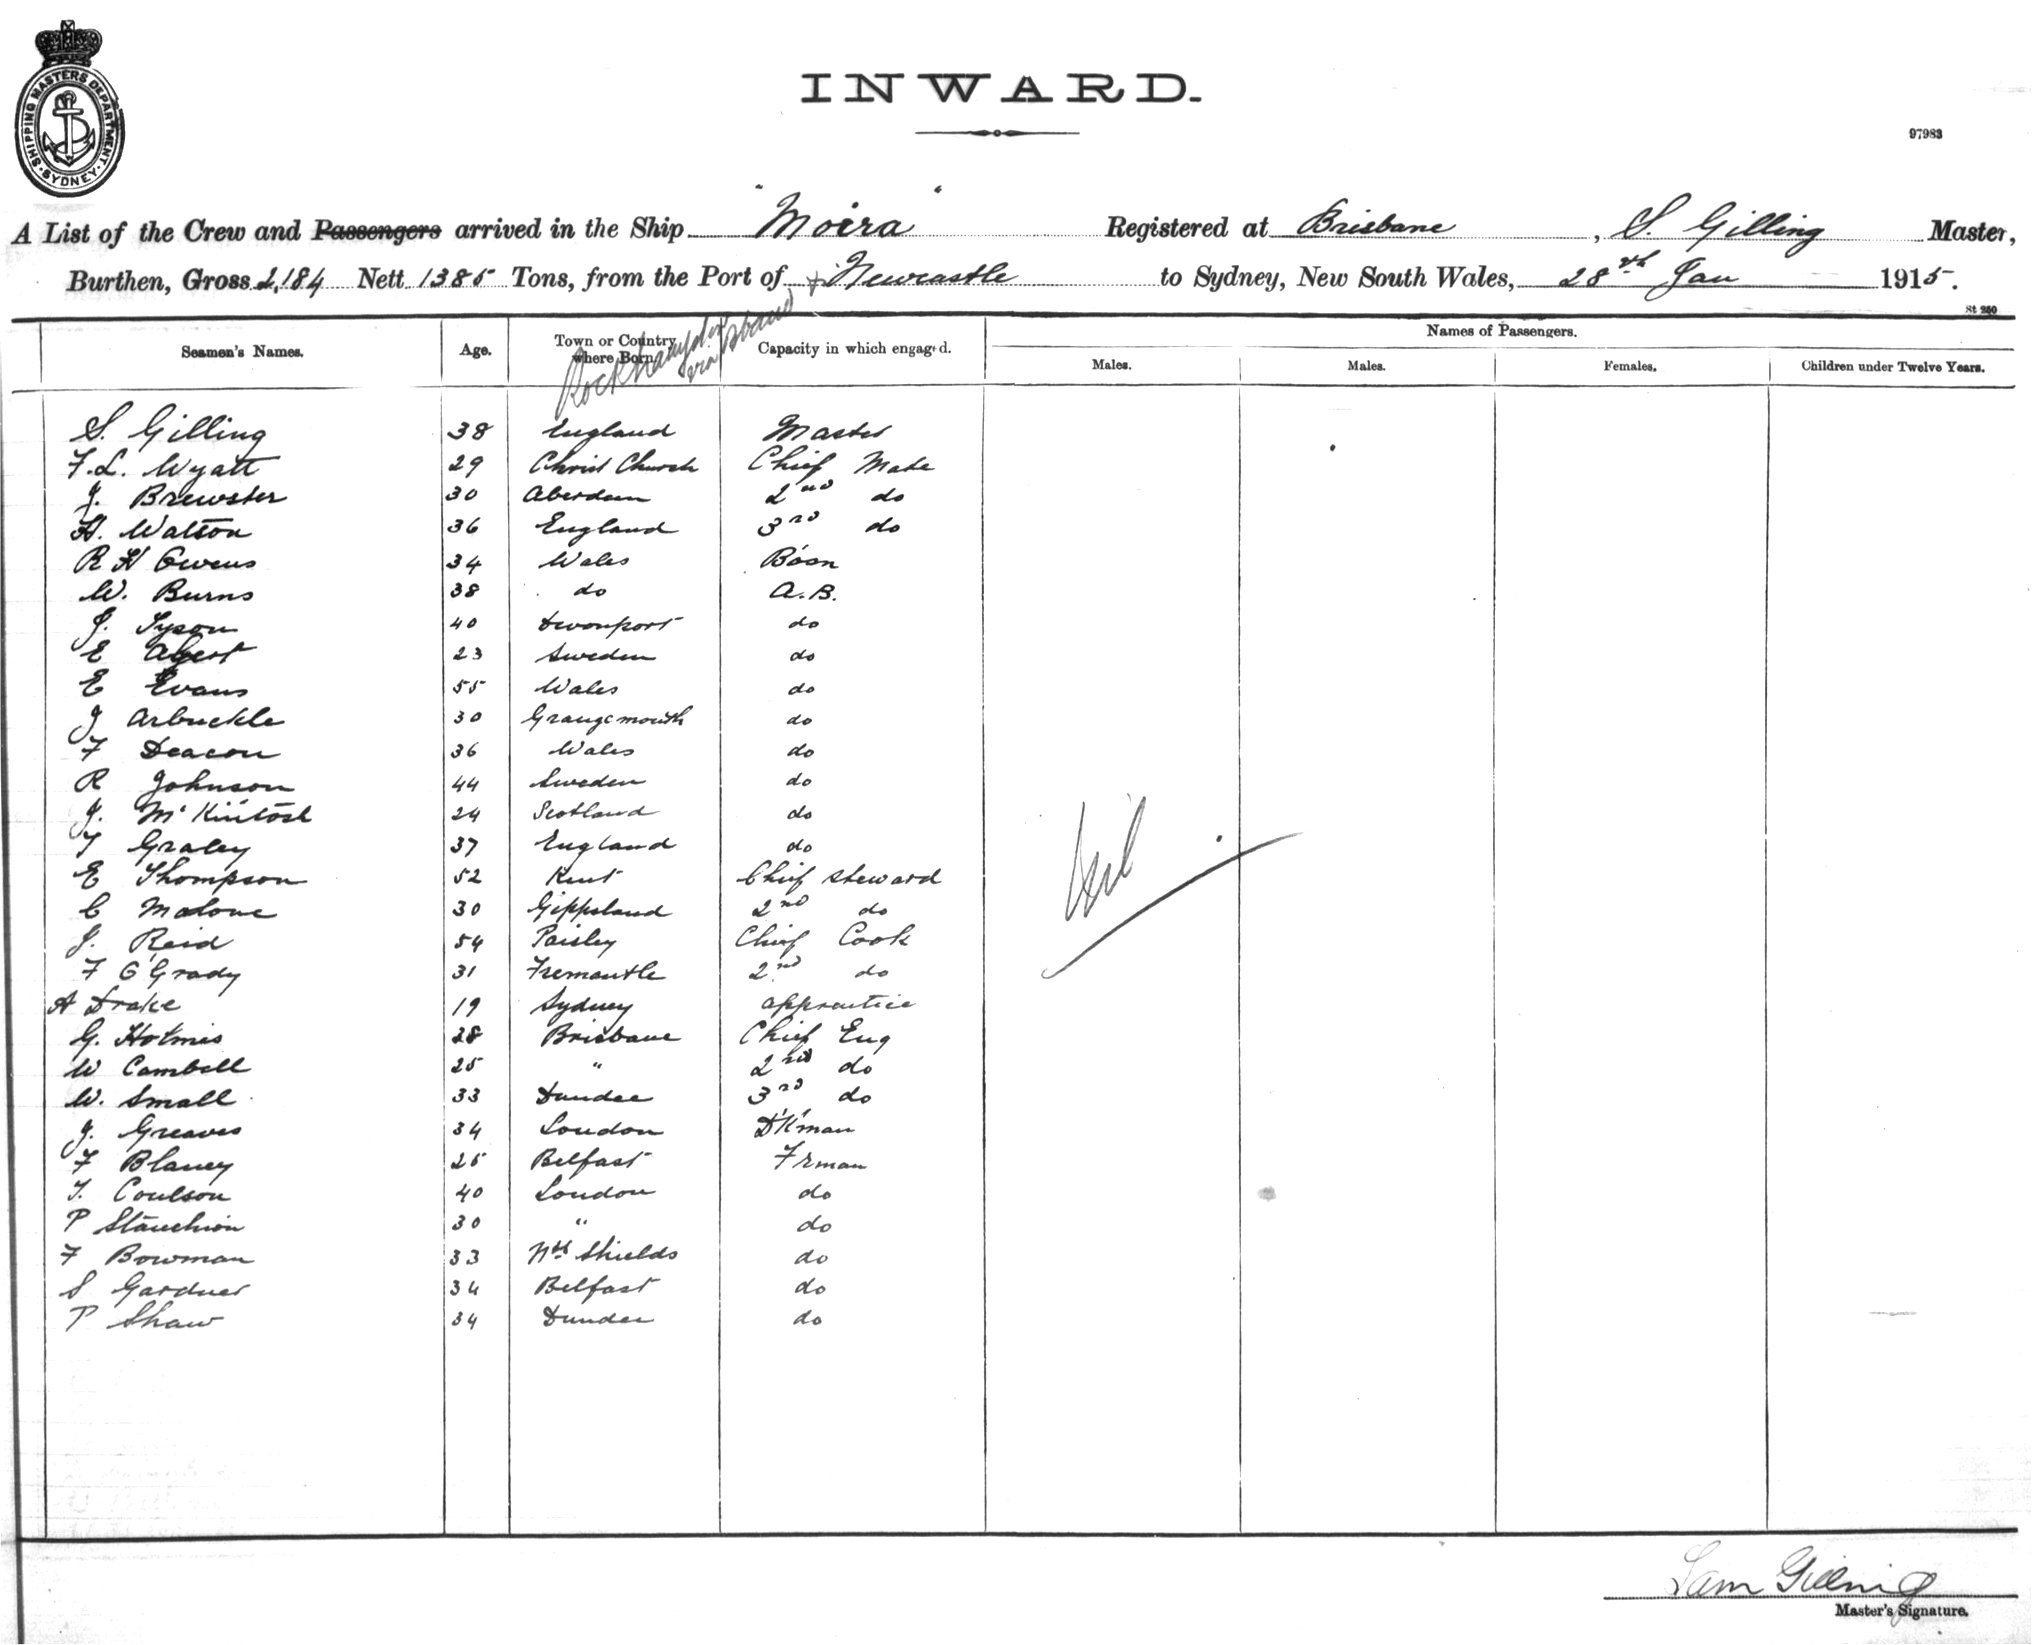 SHIPPING MASTERS DEPARTMENT. SYDNEY.
INWARD.
97983
A List of the Crew and Passengers arrived in the Ship "Moira" Registered at Brisbane, S. Gilling Master,
Burthen, Gross 2,184 Nett 1385 Tons, from the Port of + Newcastle to Sydney, New South Wales, 28th Jan 1915.
St 250
Rockhampton via Brisbane
Seamen's Names. Age. Town or Country where Born. Capacity in which engaged. Names of Passengers.
Males. Males. Females. Children under Twelve Years.
S. Gilling 38 England Master
F. L. Wyatt 29 Christ Church Chief Mate
J. Brewster 30 Aberdeen 2nd do
H. Watson 36 England 3rd do
R H Owens 34 Wales Bosn
W. Burns 38 do A.B.
J. Tyson 40 Devonport do
E 23 Sweden do
E Evans 55 Wales do
J Arbuckle 30 Grangemouth do
F Deacon 36 Wales do
R Johnson 44 Sweden do
J. McKintosh 24 Scotland do
T Graley 37 England do
E Thompson 52 Kent Chief Steward
C Malone 30 Gippsland 2nd do
J. Reid 54 Paisley Chief Cook
F O'Grady 31 Fremantle 2nd do
A Drake 19 Sydney apprentice
G. Holmes 28 Brisbane Chief Eng
W Cambell 25 " 2nd do
W. Small 33 Dundee 3rd do
J. Greaves 34 London D'K'man
F Blaney 25 Belfast Frman
T. Coulson 40 London do
P Stanchion 30 " do
F Bowman 33 Nth Shields do
S Gardner 34 Belfast do
P Shaw 34 Dundee do
Nil
Sam Gilling
Master's Signature.